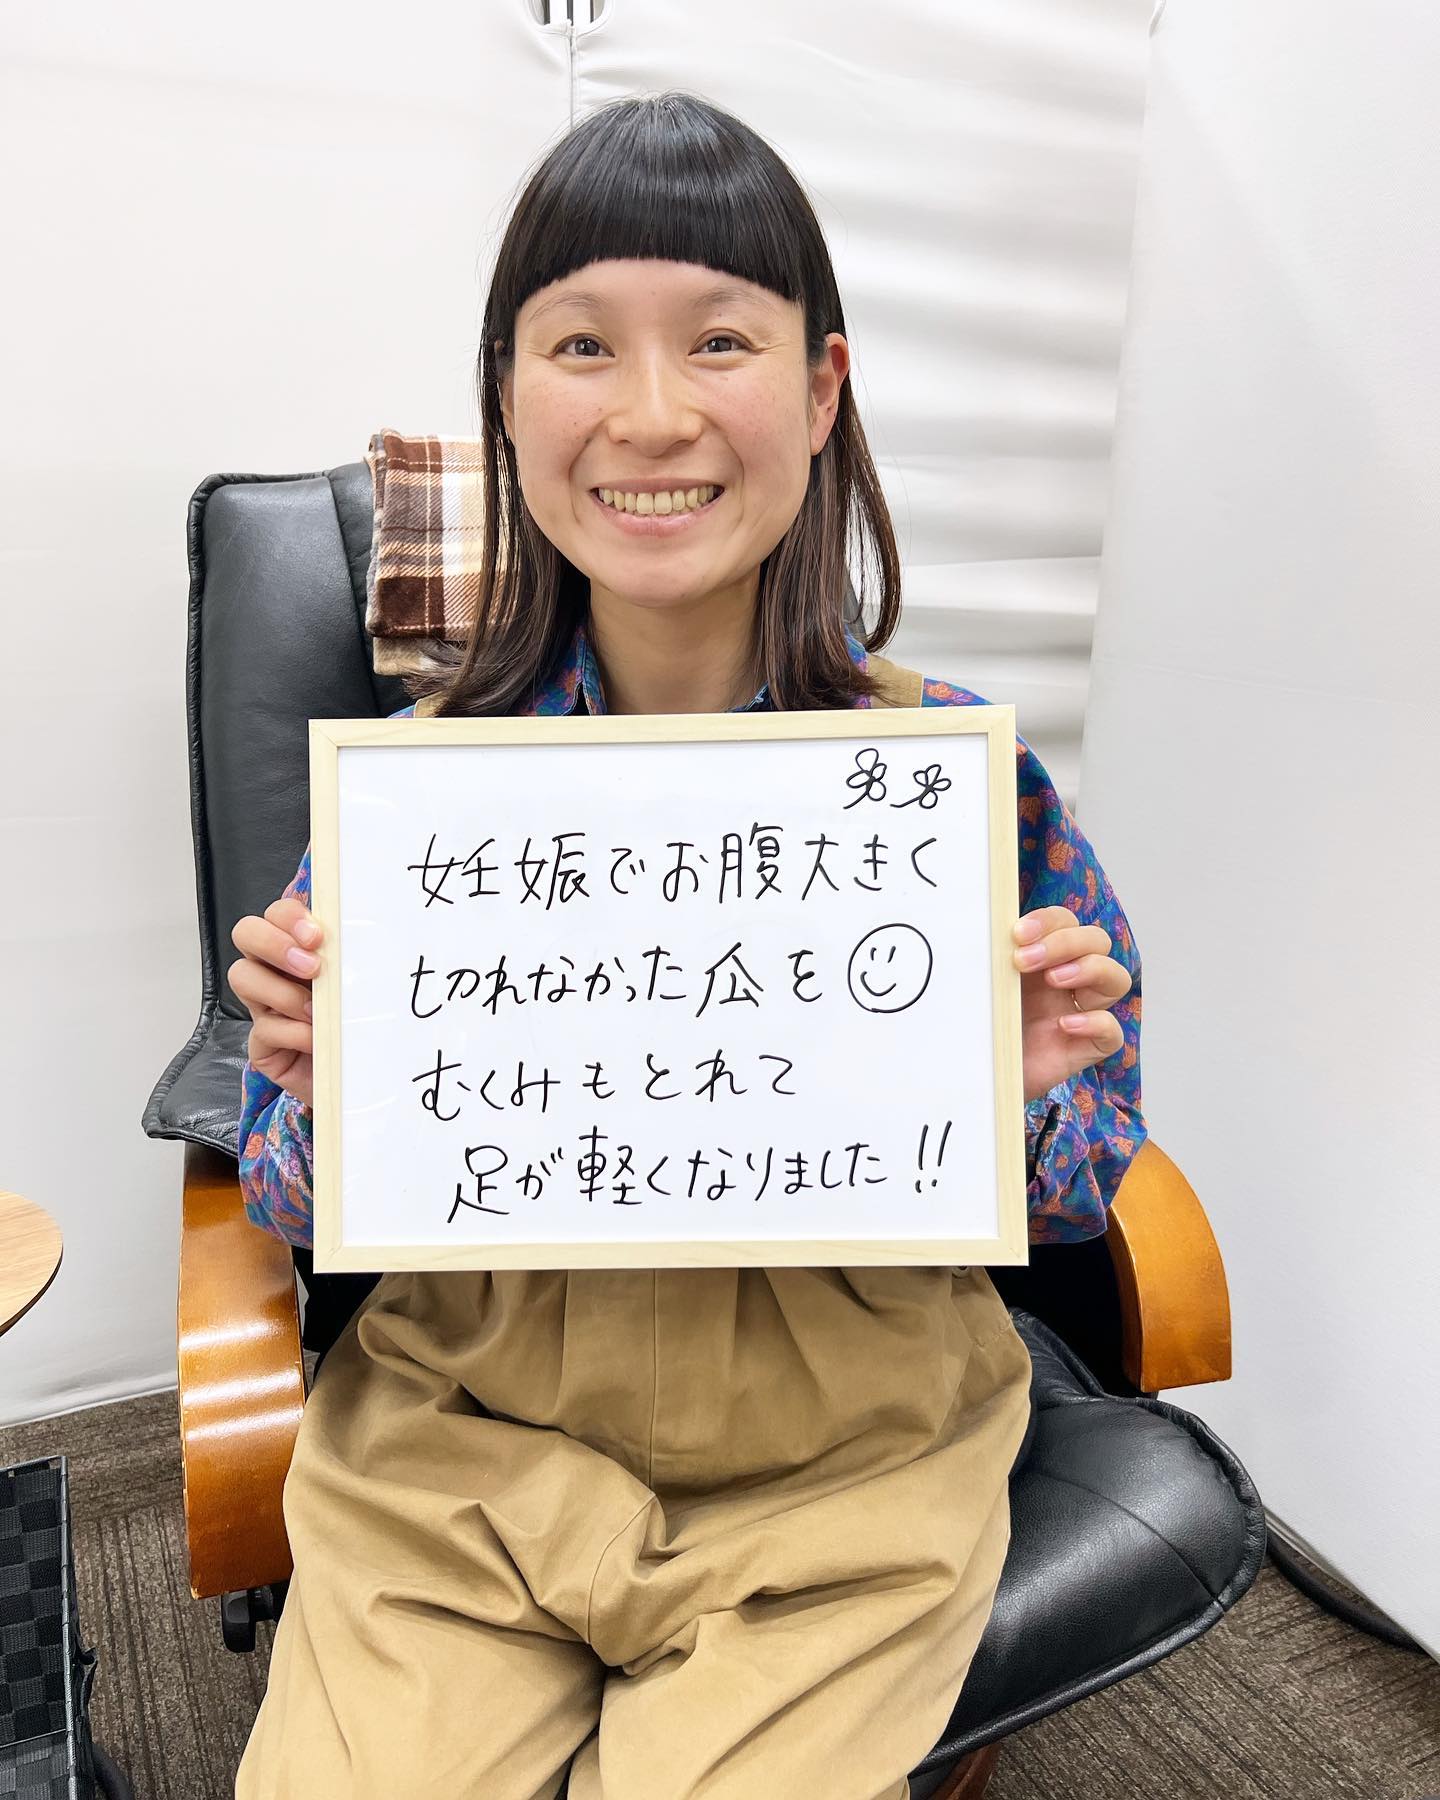 妊娠でお腹大きく
切れなかった瓜を
むくみもとれて
足が軽くなりました!!